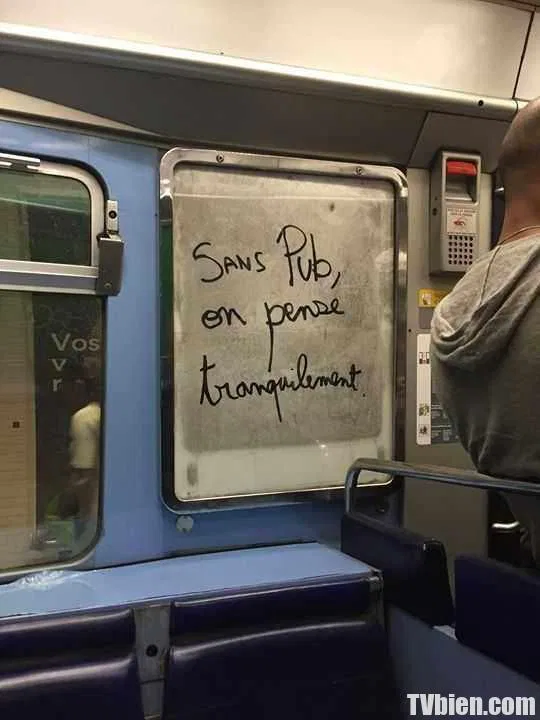 Sans Pub,
on pense
tranquilement.
Vos
v
r
TVbien.com